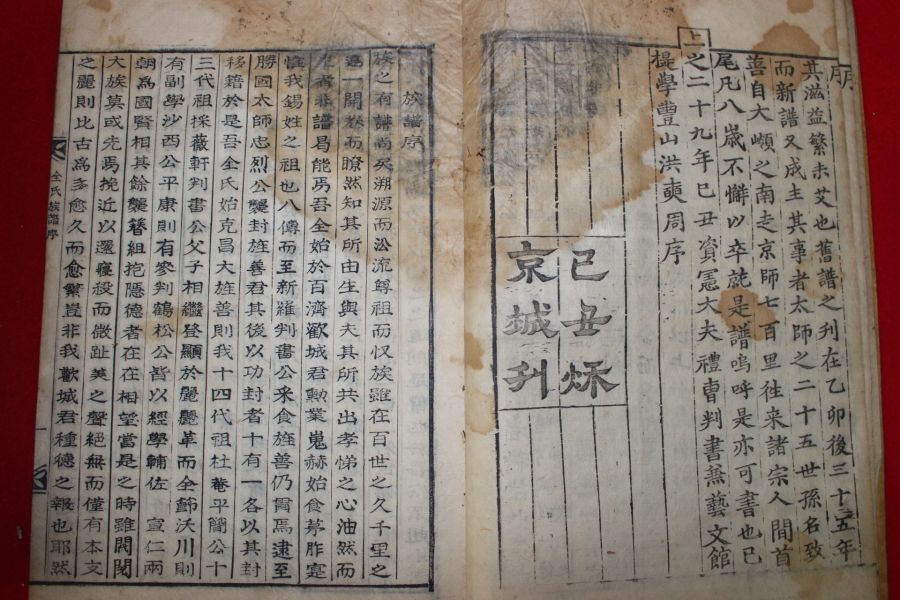 明
其滋益繁未艾也舊譜之刊在乙卯後三十五年
而新譜又成主其事者太師之二十五世孫名致
善自大嶺之南走京師七百里往來諸宗人間首
尾凡八歲不懈以卒就是譜嗚呼是亦可書也已
上之二十九年己丑資憲大夫禮曹判書兼藝文館
提學豊山洪奭周序
己丑秋
京城刊
族譜序
族之有譜尚矣溯源而沿流尊祖而收族雖在百世之久千里之
遠一開卷而瞭然知其所由生與夫其所共出孝悌之心油然而
生者非譜曷能焉吾全始於百濟歡城君勳業嵬赫始食茅胙寔
惟我錫姓之祖也八傳而至新羅判書公采食旌善仍貫焉逮至
勝國太師忠烈公襲封旌善君其後以功封者十有一各以其封
移籍於是吾全氏始克昌大旌善則我十四代祖杜菴平簡公十
三代祖採薇軒判書公父子相繼登顯於麗麗革而全節沃川則
有副學沙西公平康則有參判鶴松公皆以經學輔佐 宣仁兩
朝爲國賢相其餘襲簪組抱隱德者在在相望當是之時雖閥閱
大族莫或先焉挽近以還寢殺而微趾美之聲絕無而僅有本支
之麗則比古爲多愈久而愈繁豈非我歡城君種德之報也耶然
全氏族譜序
一